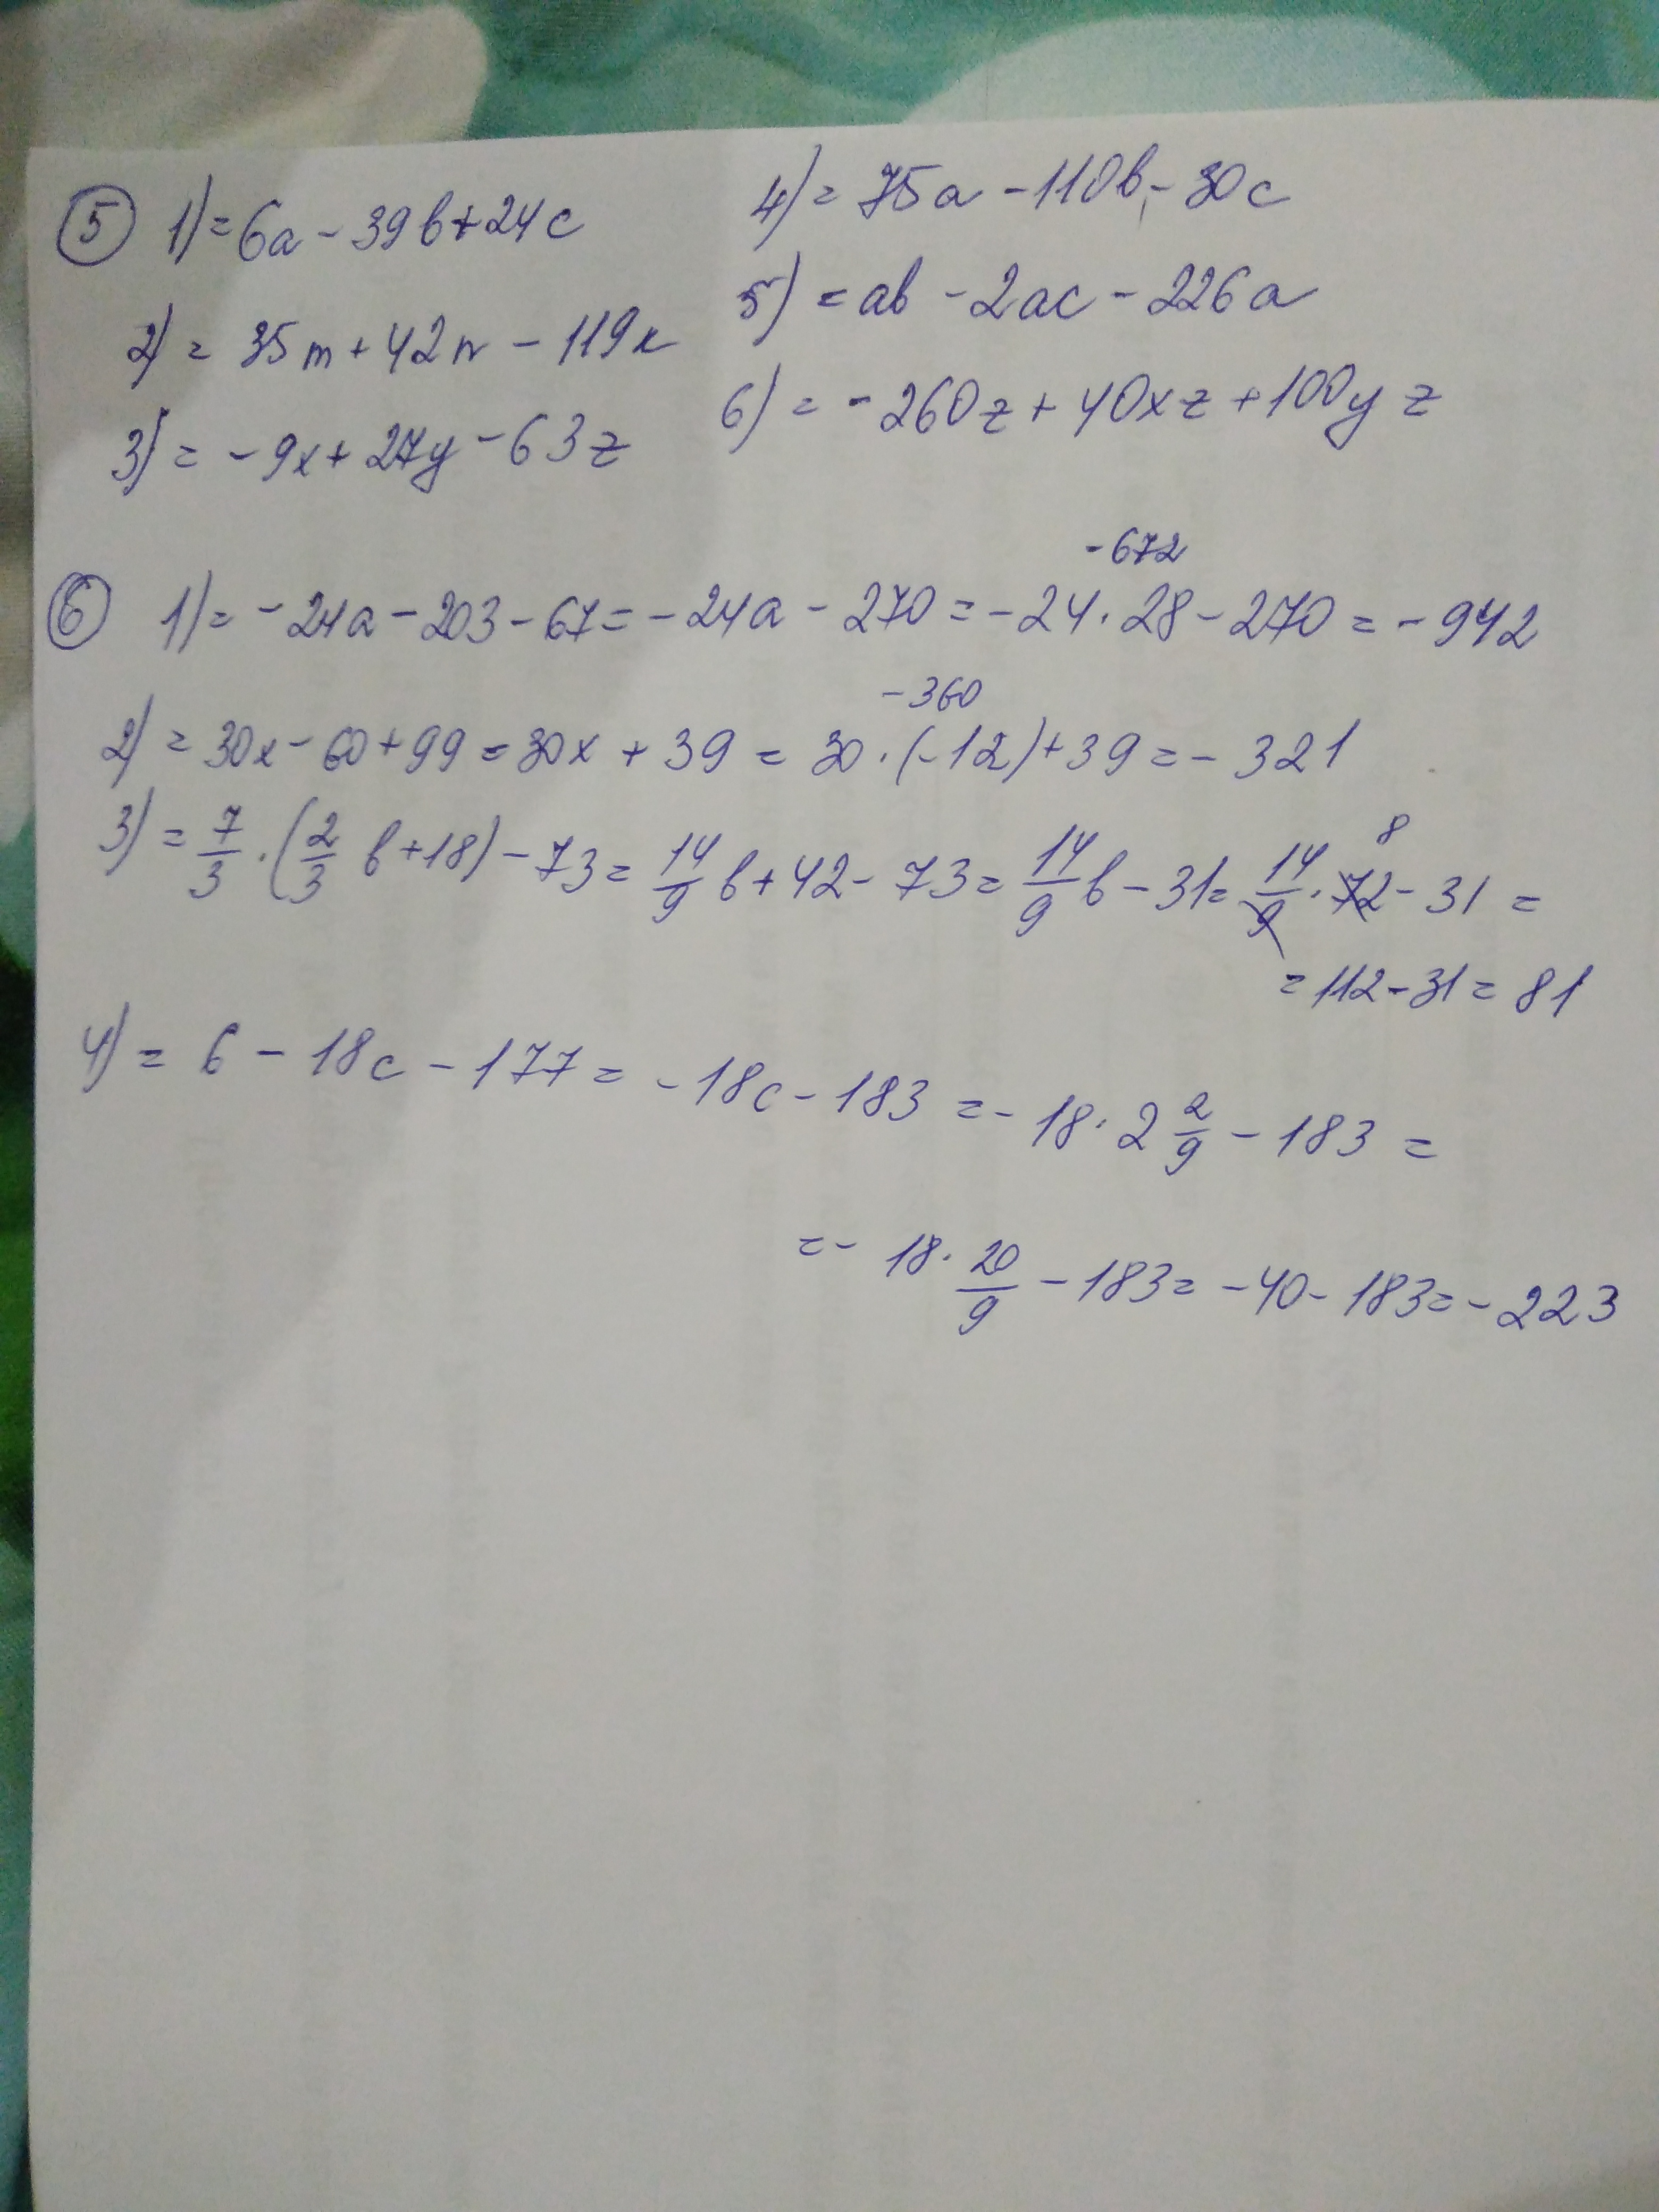 ⑤ 1) = 6a - 39b + 24c
2) = 35m + 42n - 119k
3) = -9x + 27y - 63z
4) = 75a - 110b - 30c
5) = ab - 2ac - 226a
6) = -260z + 40xz + 100yz
-672
⑥ 1) = -24a - 203 - 67 = -24a - 270 = -24 · 28 - 270 = -942
-360
2) = 30x - 60 + 99 = 30x + 39 = 30 · (-12) + 39 = -321
8
3) = 7/3 · (2/3 b + 18) - 73 = 14/9 b + 42 - 73 = 14/9 b - 31 = 14/9 · 72 - 31 =
= 112 - 31 = 81
4) = 6 - 18c - 177 = -18c - 183 = -18 · 2 2/9 - 183 =
= -18 · 20/9 - 183 = -40 - 183 = -223